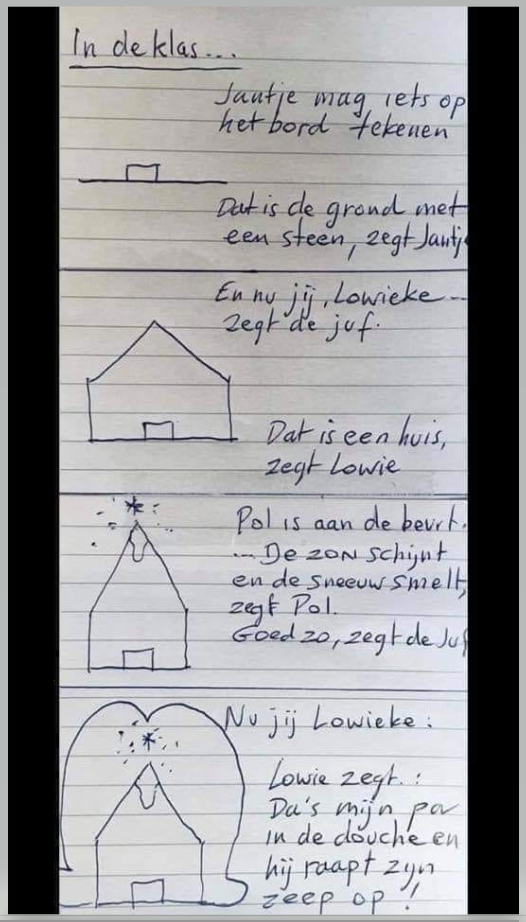 In de klas...
Jantje mag iets op
het bord tekenen
Dat is de grond met
een steen, zegt Jantj
En nu jij, Lowieke ---
zegt de juf.
Dat is een huis,
zegt Lowie
Pol is aan de beurt.
... De zon schijnt
en de sneeuw smelt,
zegt Pol.
Goed zo, zegt de Juf
Nu jij Lowieke :
Lowie zegt. :
Da's mijn pa
in de douche en
hij raapt zijn
zeep op !